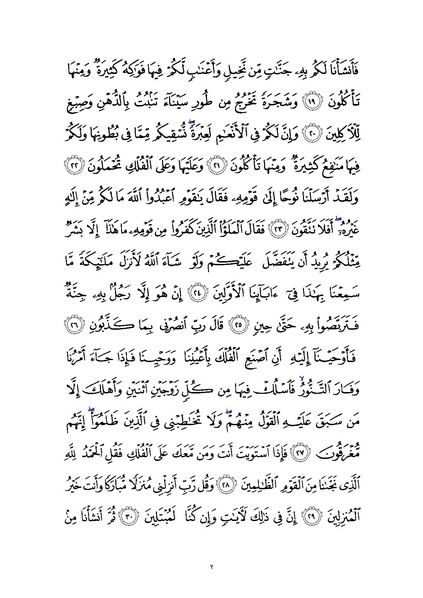 فَأَنشَأْنَا لَكُم بِهِۦ جَنَّٰتٍ مِّن نَّخِيلٍ وَأَعْنَٰبٍ لَّكُمْ فِيهَا فَوَٰكِهُ كَثِيرَةٌ وَمِنْهَا
تَأْكُلُونَ ۝١٩ وَشَجَرَةً تَخْرُجُ مِن طُورِ سَيْنَآءَ تَنۢبُتُ بِٱلدُّهْنِ وَصِبْغٍ
لِّلْءَاكِلِينَ ۝٢٠ وَإِنَّ لَكُمْ فِى ٱلْأَنْعَٰمِ لَعِبْرَةً ۖ نُّسْقِيكُم مِّمَّا فِى بُطُونِهَا وَلَكُمْ
فِيهَا مَنَٰفِعُ كَثِيرَةٌ وَمِنْهَا تَأْكُلُونَ ۝٢١ وَعَلَيْهَا وَعَلَى ٱلْفُلْكِ تُحْمَلُونَ ۝٢٢
وَلَقَدْ أَرْسَلْنَا نُوحًا إِلَىٰ قَوْمِهِۦ فَقَالَ يَٰقَوْمِ ٱعْبُدُوا۟ ٱللَّهَ مَا لَكُم مِّنْ إِلَٰهٍ
غَيْرُهُۥٓ ۖ أَفَلَا تَتَّقُونَ ۝٢٣ فَقَالَ ٱلْمَلَؤُا۟ ٱلَّذِينَ كَفَرُوا۟ مِن قَوْمِهِۦ مَا هَٰذَآ إِلَّا بَشَرٌ
مِّثْلُكُمْ يُرِيدُ أَن يَتَفَضَّلَ عَلَيْكُمْ وَلَوْ شَآءَ ٱللَّهُ لَأَنزَلَ مَلَٰٓئِكَةً مَّا
سَمِعْنَا بِهَٰذَا فِىٓ ءَابَآئِنَا ٱلْأَوَّلِينَ ۝٢٤ إِنْ هُوَ إِلَّا رَجُلٌۢ بِهِۦ جِنَّةٌ
فَتَرَبَّصُوا۟ بِهِۦ حَتَّىٰ حِينٍ ۝٢٥ قَالَ رَبِّ ٱنصُرْنِى بِمَا كَذَّبُونِ ۝٢٦
فَأَوْحَيْنَآ إِلَيْهِ أَنِ ٱصْنَعِ ٱلْفُلْكَ بِأَعْيُنِنَا وَوَحْيِنَا فَإِذَا جَآءَ أَمْرُنَا
وَفَارَ ٱلتَّنُّورُ ۙ فَٱسْلُكْ فِيهَا مِن كُلٍّ زَوْجَيْنِ ٱثْنَيْنِ وَأَهْلَكَ إِلَّا
مَن سَبَقَ عَلَيْهِ ٱلْقَوْلُ مِنْهُمْ ۖ وَلَا تُخَٰطِبْنِى فِى ٱلَّذِينَ ظَلَمُوٓا۟ ۖ إِنَّهُم
مُّغْرَقُونَ ۝٢٧ فَإِذَا ٱسْتَوَيْتَ أَنتَ وَمَن مَّعَكَ عَلَى ٱلْفُلْكِ فَقُلِ ٱلْحَمْدُ لِلَّهِ
ٱلَّذِى نَجَّىٰنَا مِنَ ٱلْقَوْمِ ٱلظَّٰلِمِينَ ۝٢٨ وَقُل رَّبِّ أَنزِلْنِى مُنزَلًا مُّبَارَكًا وَأَنتَ خَيْرُ
ٱلْمُنزِلِينَ ۝٢٩ إِنَّ فِى ذَٰلِكَ لَءَايَٰتٍ وَإِن كُنَّا لَمُبْتَلِينَ ۝٣٠ ثُمَّ أَنشَأْنَا مِنۢ
٢